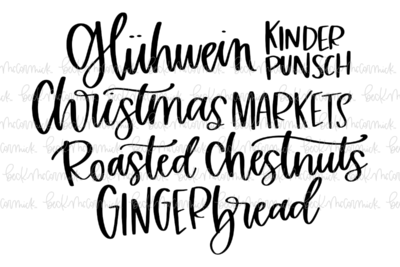 Glühwein KINDER PUNSCH
Christmas MARKETS
Roasted Chestnuts
GINGERbread